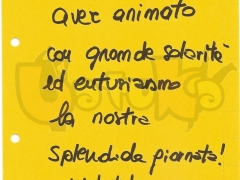 aver animato
con grande solarità
ed enturiasmo
la nostra
splendida giornata!